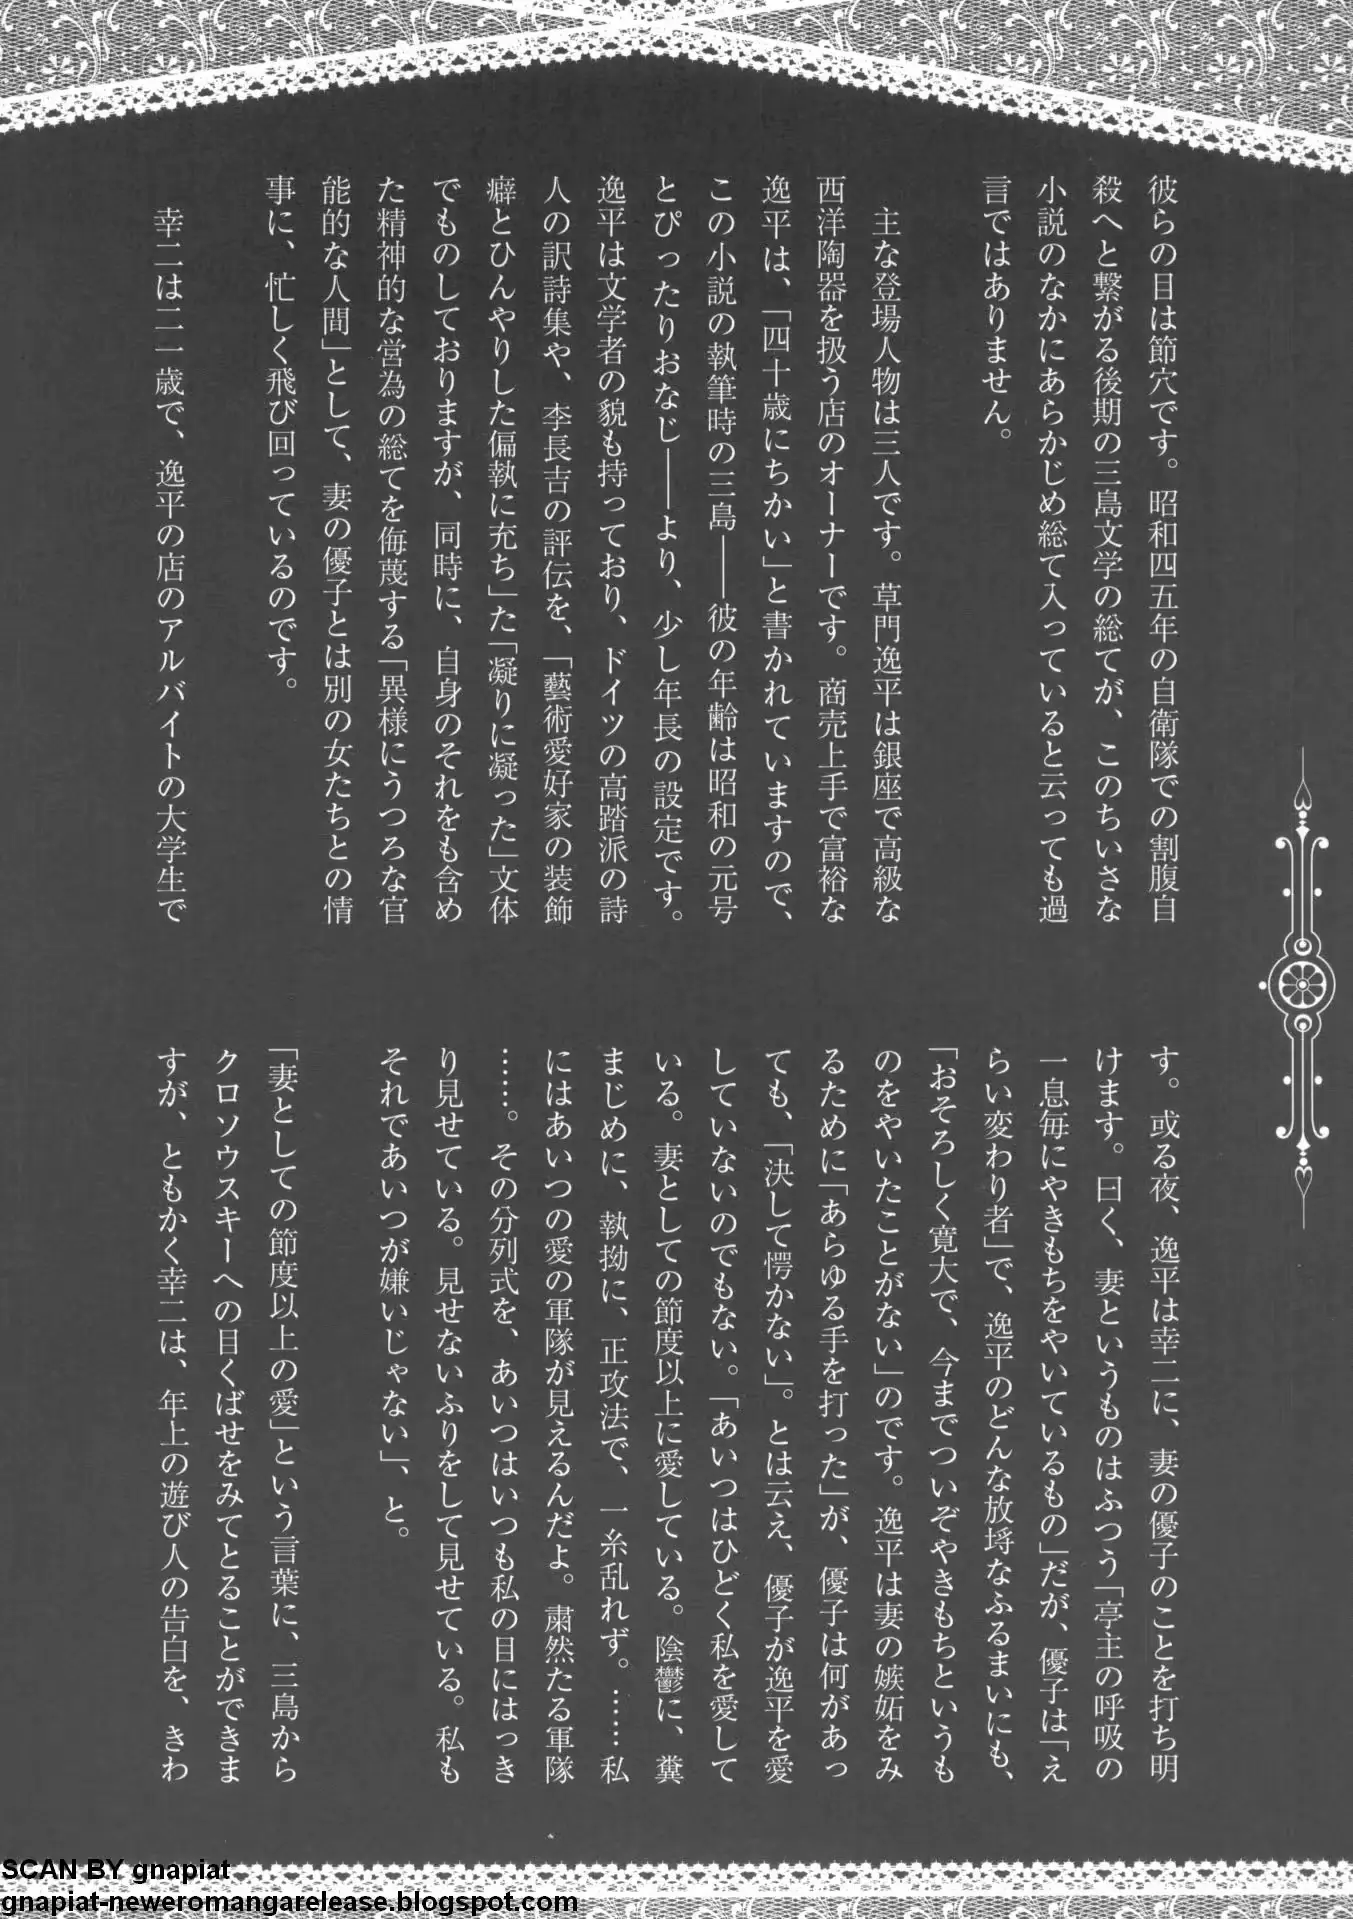 彼らの目は節穴です。昭和四五年の自衛隊での割腹自
殺へと繋がる後期の三島文学の総てが、このちいさな
小説のなかにあらかじめ総て入っていると云っても過
言ではありません。
主な登場人物は三人です。草門逸平は銀座で高級な
西洋陶器を扱う店のオーナーです。商売上手で富裕な
逸平は、「四十歳にちかい」と書かれていますので、
この小説の執筆時の三島――彼の年齢は昭和の元号
とぴったりおなじ――より、少し年長の設定です。
逸平は文学者の貌も持っており、ドイツの高踏派の詩
人の訳詩集や、李長吉の評伝を、「藝術愛好家の装飾
癖とひんやりした偏執に充ち」た「凝りに凝った」文体
でものしておりますが、同時に、自身のそれをも含め
た精神的な営為の総てを侮蔑する「異様にうつろな官
能的な人間」として、妻の優子とは別の女たちとの情
事に、忙しく飛び回っているのです。
幸二は二一歳で、逸平の店のアルバイトの大学生で
す。或る夜、逸平は幸二に、妻の優子のことを打ち明
けます。曰く、妻というものはふつう「亭主の呼吸の
一息毎にやきもちをやいているもの」だが、優子は「え
らい変わり者」で、逸平のどんな放埓なふるまいにも、
「おそろしく寛大で、今までついぞやきもちというも
のをやいたことがない」のです。逸平は妻の嫉妬をみ
るために「あらゆる手を打った」が、優子は何があっ
ても、「決して愕かない」。とは云え、優子が逸平を愛
していないのでもない。「あいつはひどく私を愛して
いる。妻としての節度以上に愛している。陰鬱に、糞
まじめに、執拗に、正攻法で、一糸乱れず。……私
にはあいつの愛の軍隊が見えるんだよ。粛然たる軍隊
……。その分列式を、あいつはいつも私の目にはっき
り見せている。見せないふりをして見せている。私も
それであいつが嫌いじゃない」、と。
「妻としての節度以上の愛」という言葉に、三島から
クロソウスキーへの目くばせをみてとることができま
すが、ともかく幸二は、年上の遊び人の告白を、きわ
SCAN BY gnapiat
gnapiat-neweromangarelease.blogspot.com